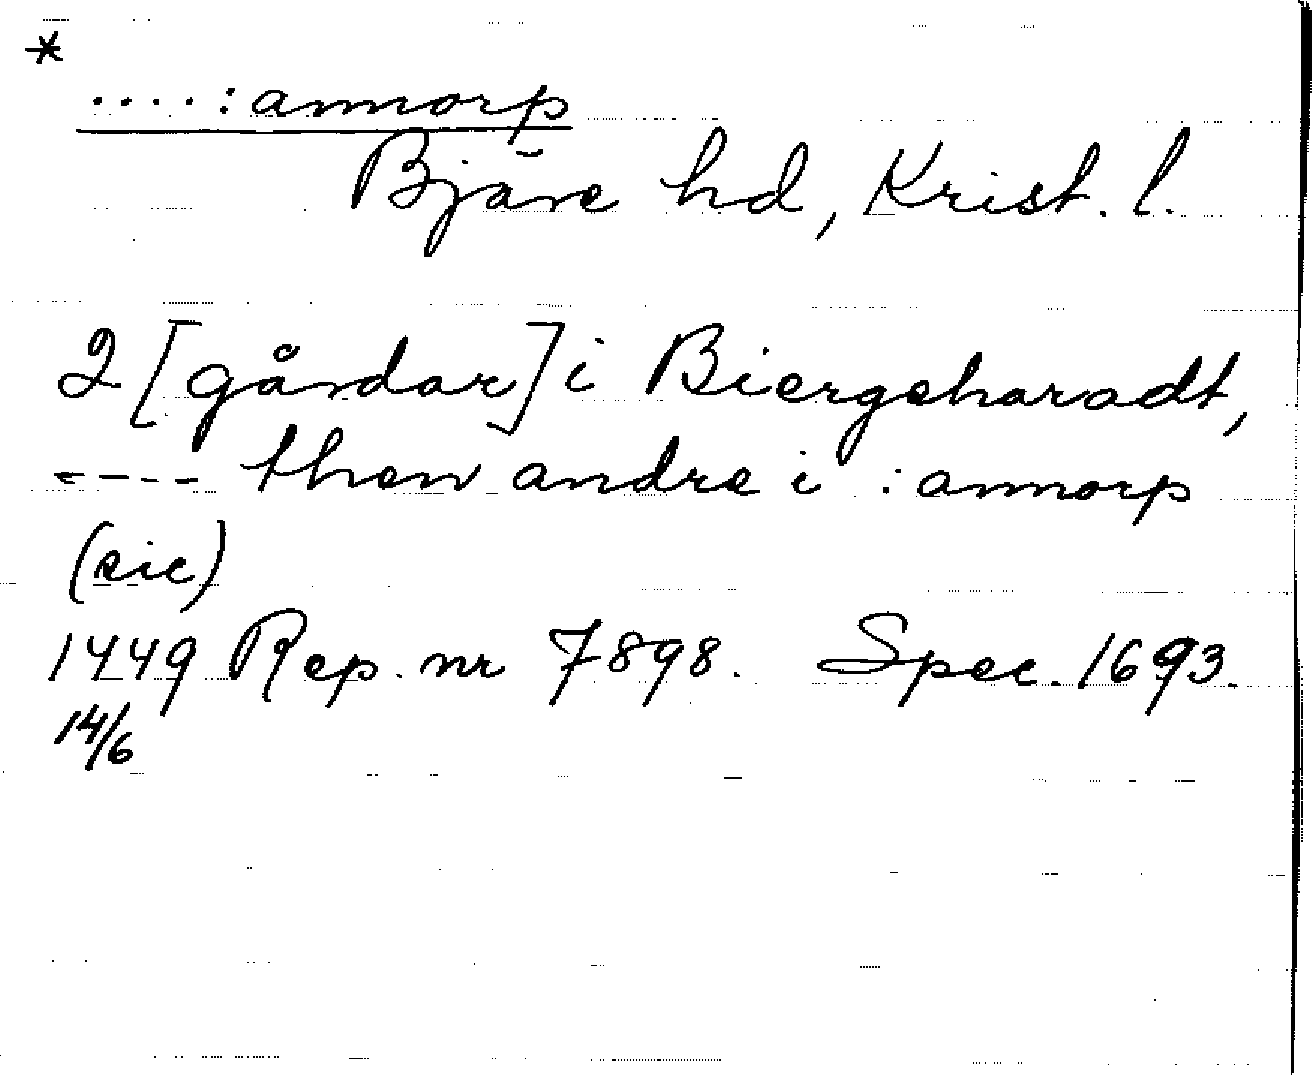 *
....:annorp
Bjäre hd, Krist. l.
2 [gårdar] i Biergeharadt,
---- then andre i :annorp
(sic)
1449 Rep. nr 7898. Spec. 1693.
14/6